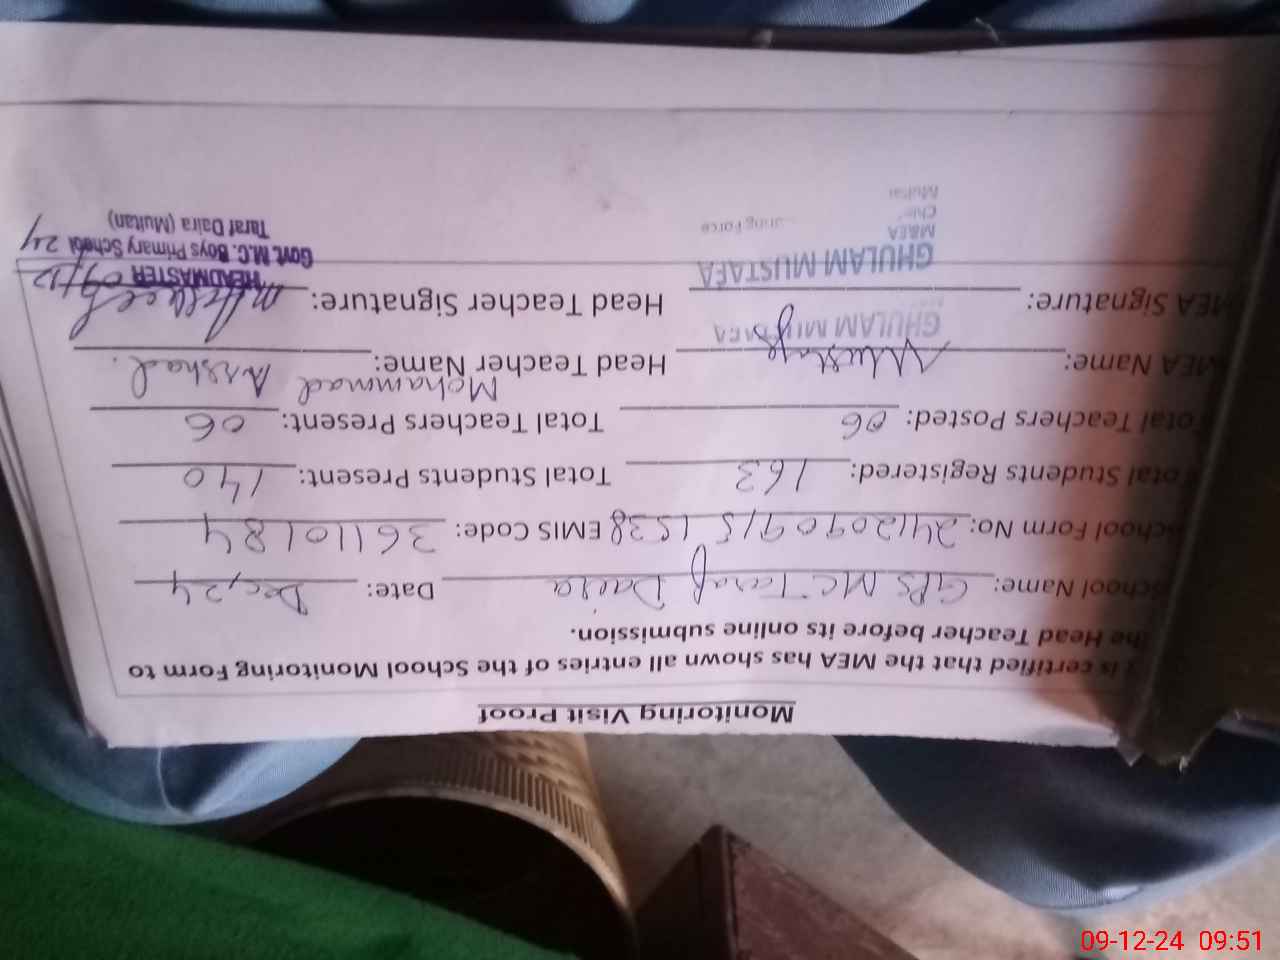 Monitoring Visit Proof
is certified that the MEA has shown all entries of the School Monitoring Form to
the Head Teacher before its online submission.
School Name: GPS MC Taraf Daira Date: Dec, 24
School Form No: 2411209 0915 1538 EMIS Code: 36110184
Total Students Registered: 163 Total Students Present: 140
Total Teachers Posted: 06 Total Teachers Present: 06
MEA Name: Mustafa Head Teacher Name: Mohammad Arshad.
GHULAM MUSTAFA
MEA Signature: Head Teacher Signature:
GHULAM MUSTAFA
M&EA
HEADMASTER 09/12
Govt. M.C. Boys Primary School 24
Taraf Daira (Multan)
Multan
09-12-24 09:51